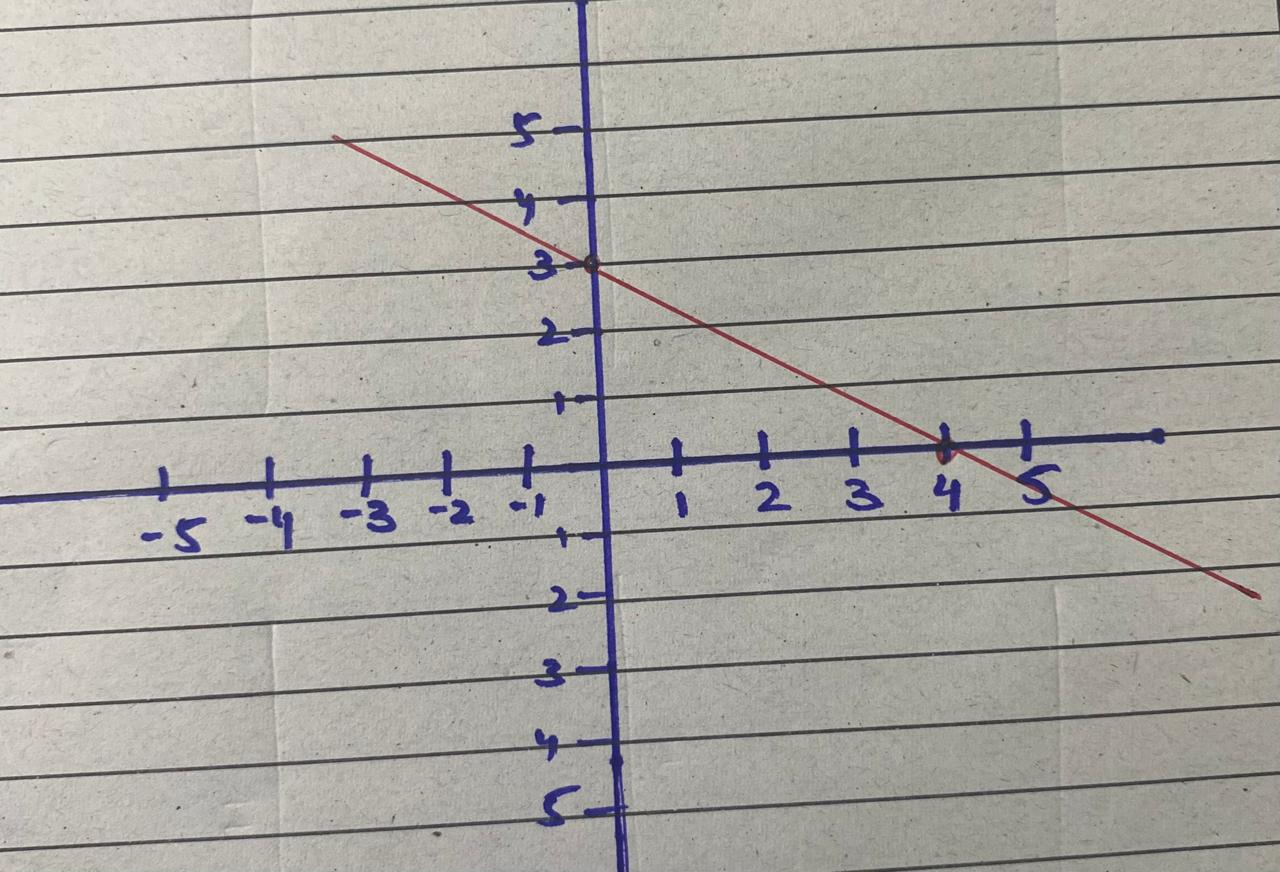 5
4
3
2
1
-5 -4 -3 -2 -1 1 2 3 4 5
1
2
3
4
5